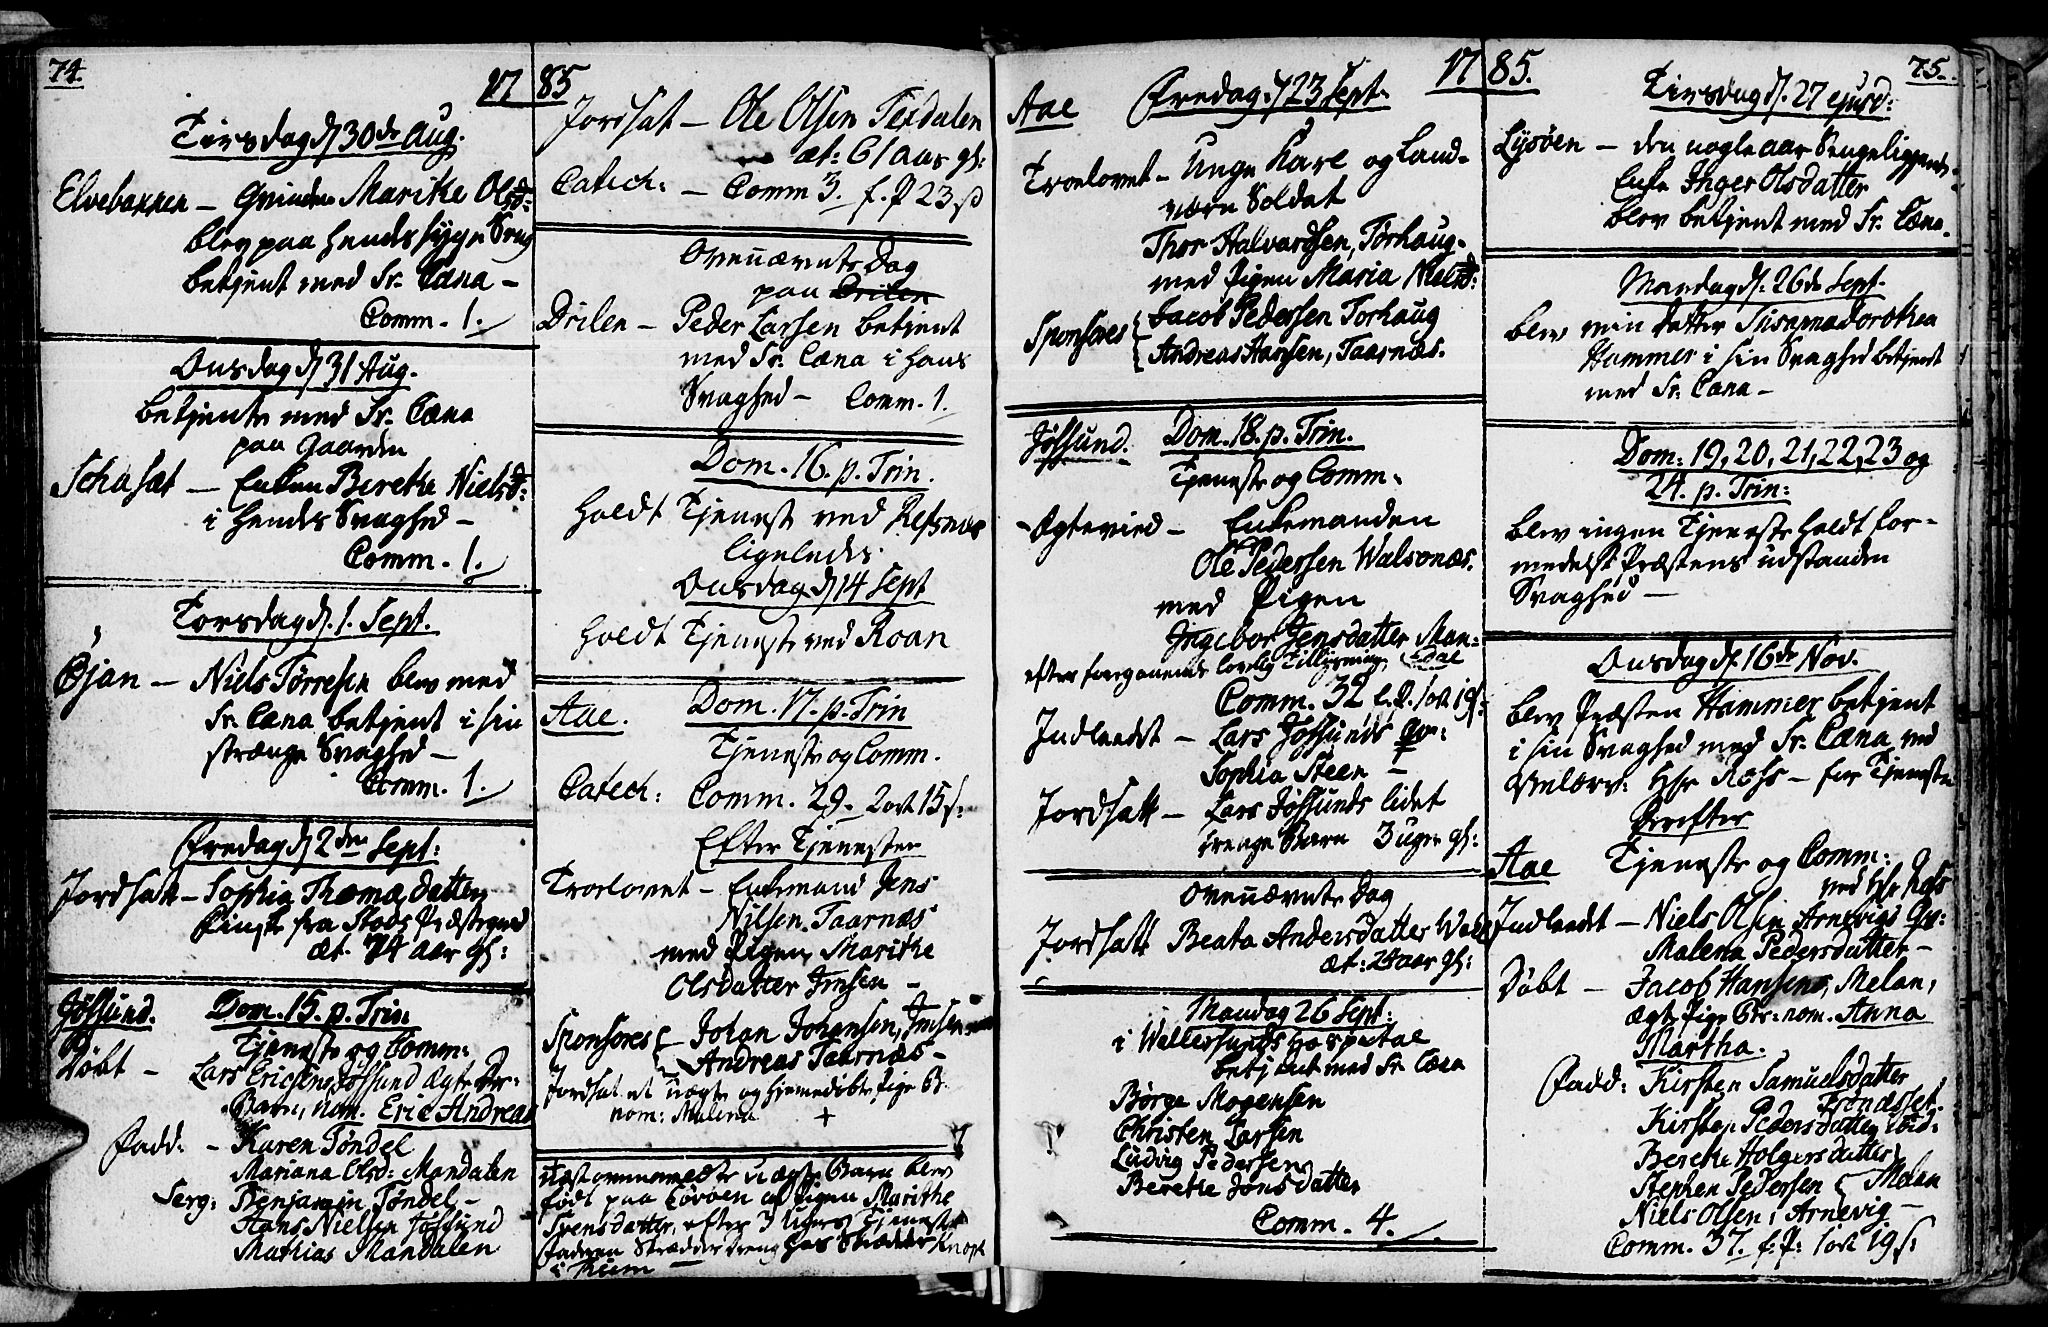 74.
1785
Tirsdag d 30de Aug.
Elvebaxxen – Qvinden Marithe Olsd:
blev paa hendes syge Seng
betjent med Sr. Cæna –
Comm. 1.
Onsdag d 31 Aug.
betjente med Sr. Cæna
paa Gaarden
Schasæt – Enken Berethe Nielsd:
i hendes Svaghed –
Comm. 1.
Torsdag d. 1. Sept.
Øjan – Niels Tørresen blev med
Sr. Cæna betjent i sin
strænge Svaghed –
Comm. 1.
Fredag d 2den Sept:
Jordsatt – Sophia Thomædatter
fra Stods Præstegield
æt. 74 aar gl:
Jøssund. Dom. 15. p. Trin.
Tjeneste og Comm:
Døbt – Lars Ericsens Jøssund Ægte
Barn, nom. Eric Andreas
Fadd: – Karen Tøndel
Mariana Olsd: Mandalen
Serg: Benjamin Tøndel –
Hans Nielsen Jøssund
Mathias Mandalen
Jordsat – Ole Olsen Terdalen
æt: 61 aar gl:
Catech: – Comm 3. f. P 23 s
Ovennævnte Dag
paa Drilen
Drilen – Peder Larsen betjent
med Sr. Cæna i hans
Svaghed – Comm. 1.
Dom. 16. p. Trin.
holdt Tjeneste ved Refsnæs
ligeledes
Onsdag d 14 Sept
holdt Tjeneste ved Roan
Aae. Dom. 17. p. Trin
Tjeneste og Comm.
Catech: Comm. 29. 2 ort 15 s:
Efter Tjenesten
Troelovet – Enkemand Jens
Nilsen Taarnæs
med Pigen Marithe
Olsdatter Imsen –
Sponsores { Johan Johansen, Imsen
Andreas Taarnæs –
Jordsat et uægte og hjemedøbte Pige B:
nom: Malena +
uægte Barn blev
født paa af Pigen Marithe
Svensdatter, efter 3 Ugers Tjeneste
Faderen Skrædder Dreng hos Skrædder Knoph
i Thiem –
1785.
75.
Aae Fredag d 23 Sept.
Troelovet – Unge Karl og Land-
værn Soldat
Thor Halvardsen, Torhaug.
med Pigen Maria Nielsd:
Sponsores { Jacob Pedersen Torhaug
Andreas Hansen, Taarnæs.
Jøssund. Dom. 18. p. Trin.
Tjeneste og Comm:
Ægtevied – Enkemanden
Ole Pedersen Walsonæs.
med Pigen
Ingebor Jensdatter Man-
efter foregaaende lovlig Tillysning
Comm. 32 f. P. 1 ort 19 s:
Indleedt – Lars Jøssunds Qv:
Sophia Steen –
Jordsatt – Lars Jøssunds lidet
Drenge Barn 3 uger gl:
Ovennævnte Dag
Jordsatt Beata Andersdatter
æt: 28 aar gl:
Mandag 26 Sept:
i Wallersunds Hospital
betjent med Sr Cæna
Børge Mogensen
Christen Larsen
Ludvig Pedersen
Berethe Jonsdatter
Comm. 4.
Tirsdag d. 27 ejusd:
Lysøen – den nogle aar Sengeliggende
Enke Inger Olsdatter
blev betjent med Sr. Cæna.
Mandag d. 26de Sept.
blev min Datter Susanna Dorothea
Hammer i sin Svaghed betjent
med Sr. Cæna –
Dom: 19, 20, 21, 22, 23 og
24. p. Trin:
blev ingen Tjeneste holdt for-
medelst Præstens udstandene
Svaghed –
Onsdag d. 16de Nov.
blev Præsten Hammer betjent
i sin Svaghed med Sr. Cæna ved
Hr Ross – før Tjenesten
Derefter
Aae Tjeneste og Comm:
ved Hr Ross
Indleedt – Niels Olsen Arnevigs Qv:
Malena Pedersdatter –
Døbt – Jacob Hansens, Melan,
ægte Pige B: nom. Anna
Martha.
Fadd: Kirsten Samuelsdatter
Trondsset.
Kirsten Pedersdatter ibid:
Berethe Holgersdatter
Stephen Pedersen { Melan
Niels Olsen, Arnevig –
Comm. 37. f. P: 1 ort 19 s: